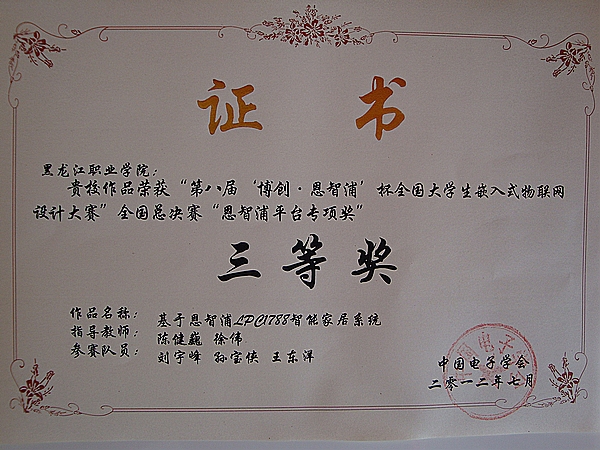 证 书
黑龙江职业学院：
贵校作品荣获“第八届‘博创·恩智浦’杯全国大学生嵌入式物联网
设计大赛”全国总决赛“恩智浦平台专项奖”
三等奖
作品名称： 基于恩智浦LPC1788智能家居系统
指导教师： 陈健巍 徐伟
参赛队员： 刘宇峰 孙宝侠 王东洋
中国电子学会
二零一二年七月